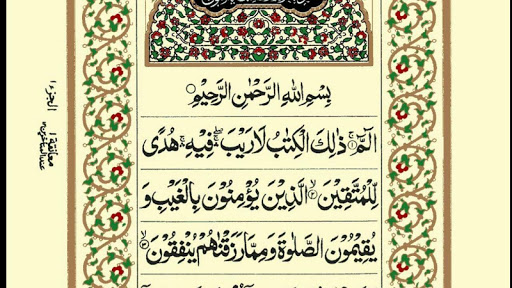 بِسْمِ اللهِ الرَّحْمٰنِ الرَّحِيْمِ
الٓمّٓ ۚ ذٰلِكَ الْكِتٰبُ لَا رَيْبَ ۛ فِيْهِ ۛ هُدًى
لِّلْمُتَّقِيْنَ ۙ الَّذِيْنَ يُؤْمِنُوْنَ بِالْغَيْبِ وَ
يُقِيْمُوْنَ الصَّلٰوةَ وَمِمَّا رَزَقْنٰهُمْ يُنْفِقُوْنَ ۙ
الجزء ١
معانقة ١